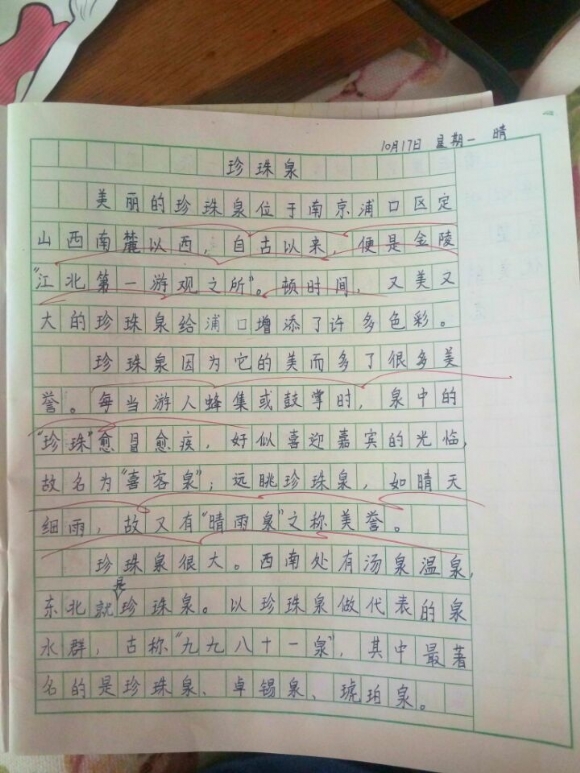 10月17日 星期一 晴
珍珠泉
美丽的珍珠泉位于南京浦口区定
山西南麓以西，自古以来，便是金陵
"江北第一游观之所"。顿时间，又美又
大的珍珠泉给浦口增添了许多色彩。
珍珠泉因为它的美而多了很多美
誉。每当游人蜂集或鼓掌时，泉中的
"珍珠"愈冒愈疾，好似喜迎嘉宾的光临，
故名为"喜客泉"；远眺珍珠泉，如晴天
细雨，故又有"晴雨泉"之称美誉。
珍珠泉很大。西南处有汤泉温泉，
东北就是珍珠泉。以珍珠泉做代表的泉
水群，古称"九九八十一泉"，其中最著
名的是珍珠泉、卓锡泉、琥珀泉。